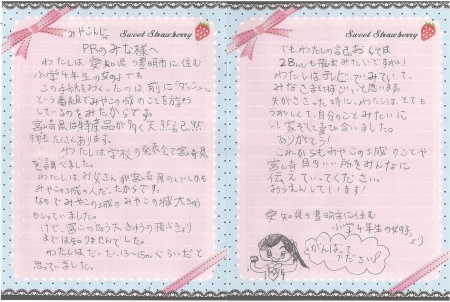 みやこんじょ
Sweet Strawberry
PRのみな様へ
わたしは、愛知県の豊明市に住む
小学4年生の女の子です
この手紙をおくったのは、前に「ダッシュ」
という番組でみやこの城のことを放そう
しているのをみたからです。
宮崎県は特産品が多く天然記念物
もたくさんあります。
わたしは、学校の発表会で宮崎県
を調べました。
わたしは、お父さんが宮崎県の
みやこの城の人だったからです。
なのでみやこの城のみやこの城大
もしっていました。
けど、
までは知りませんでした。
わたしは、だいたい13〜15mぐらいだと
思っていました。
Sweet Strawberry
でもわたしの記おくでは
28mも飛おみたいですね!
わたしは、テレビでみていて、
みなさまはすごいと思いまし
矢がささった時に、わたしは、とても
うれしくて自分のことみたいに
して家ぞくで喜び合いました。
ありがとう!
これからもみやこの城のことや
宮崎県のいい所をみんなに
伝えていってください。
おうえんしています!
愛知県の豊明市に住む
小学4年生の女の子
より
がんばって
ください!